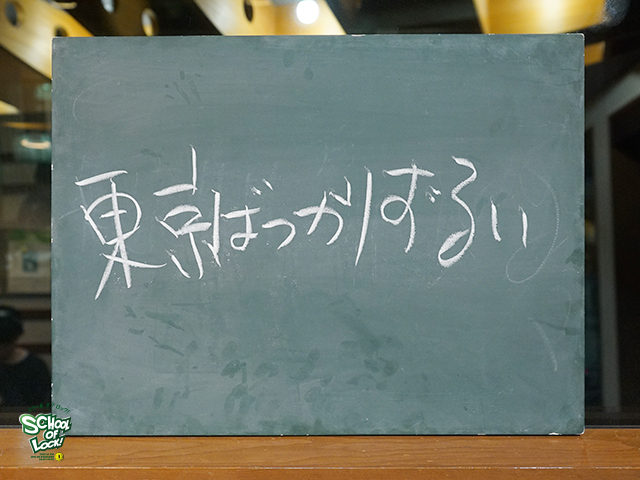 東京ばっかりずるい
SCHOOL
OF
LOCK!